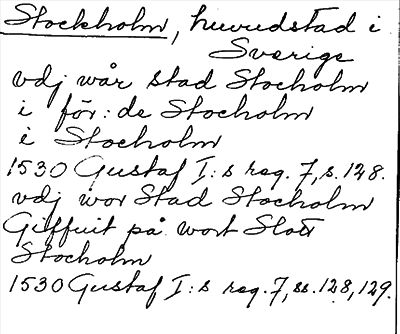 Stockholm, huvudstad i
Sverige
vdj wår stad Stocholm
i för: de Stocholm
i Stocholm
1530 Gustaf I:s reg. 7, s. 128.
vdj wor Stad Stocholm
Giffuit på wort Slott
Stocholm
1530 Gustaf I:s reg. 7, ss. 128, 129.